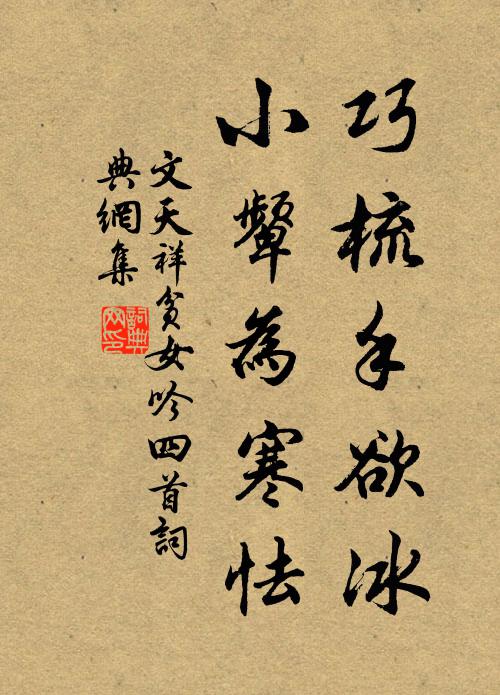 巧梳手欲冰
小顰為寒怯
文天祥貧女吟四首詞
典網集
詞典網印